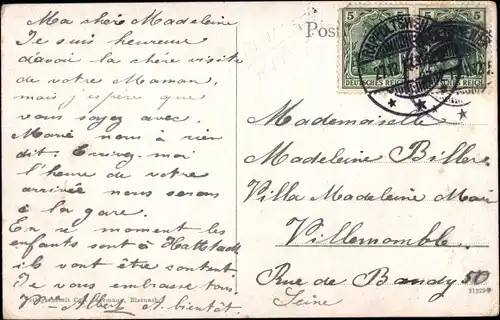 Ma chère Madeleine
Je suis heureux
d'avoir la chère visite
de votre Maman,
mais j'espère que
vous soyez avec.
nous à rien
dit. moi
l'heure de votre
arrivée nous serons
à la gare.
En ce moment les
enfants sont à Hattstadt
ils vont être contents
Je vous embrasse tous
Albert A bientôt
Post
5 5
DEUTSCHES REICH
REICH
Mademoiselle
Madeleine Biller
Villa Madeleine Mari
Villemomble.
Rue de Bandy 50
Seine